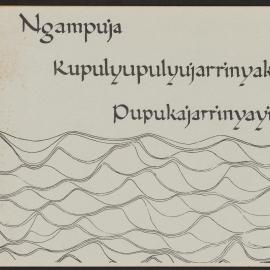 Ngampuja
Kupulyupulyujarrinyak
Pupukajarrinyayi